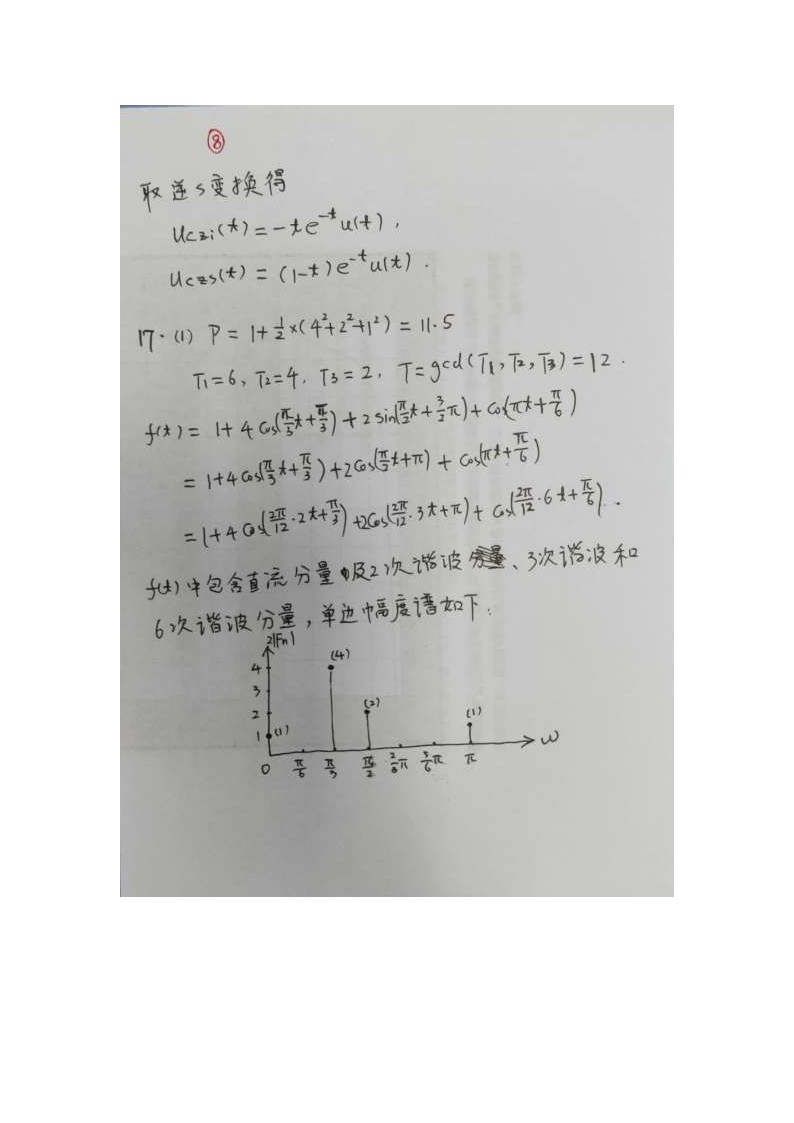 ⑧
取逆s变换得
Uczi(t) = -te^{-t}u(t),
Uczs(t) = (1-t)e^{-t}u(t).
17. (1) P = 1+\frac{1}{2}×(4²+2²+1²) = 11.5
T₁=6, T₂=4, T₃=2, T=gcd(T₁,T₂,T₃)=12.
f(t) = 1+4cos(\frac{π}{3}t+\frac{π}{3})+2sin(\frac{π}{2}t+\frac{3}{2}π)+cos(πt+\frac{π}{6})
= 1+4cos(\frac{π}{3}t+\frac{π}{3})+2cos(\frac{π}{2}t+π)+cos(πt+\frac{π}{6})
= 1+4cos(\frac{2π}{12}·2t+\frac{π}{3})+2cos(\frac{2π}{12}·3t+π)+cos(\frac{2π}{12}·6t+\frac{π}{6}).
f(t)中包含直流分量及2次谐波、3次谐波和
6次谐波分量,单边幅度谱如下:
2|Fn|
4 (4)
3
2 (2)
1 (1) (1)
ω
0 \frac{π}{6} \frac{π}{3} \frac{π}{2} \frac{2}{3}π \frac{5}{6}π π